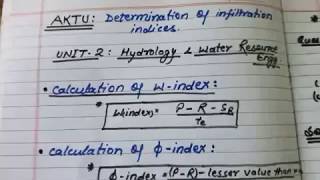 AKTU: Determination of infiltration
indices.
UNIT-2: Hydrology & Water Resource
Engg.
• Calculation of W-index:
W index = P - R - SR / te
• calculation of ɸ-index:
ɸ-index = (P-R) - lesser value than